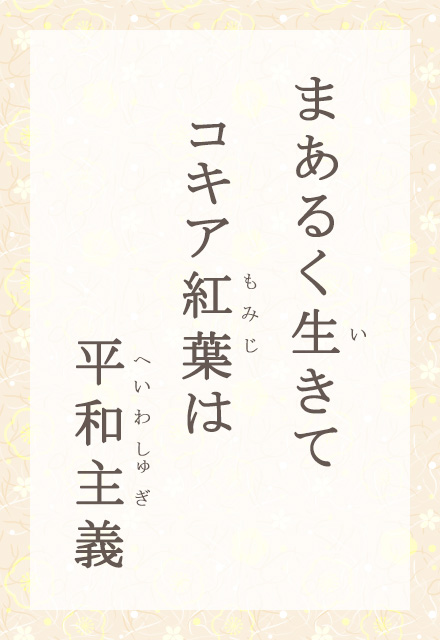 まあるく生きて
い
コキア紅葉は
もみじ
平和主義
へいわしゅぎ